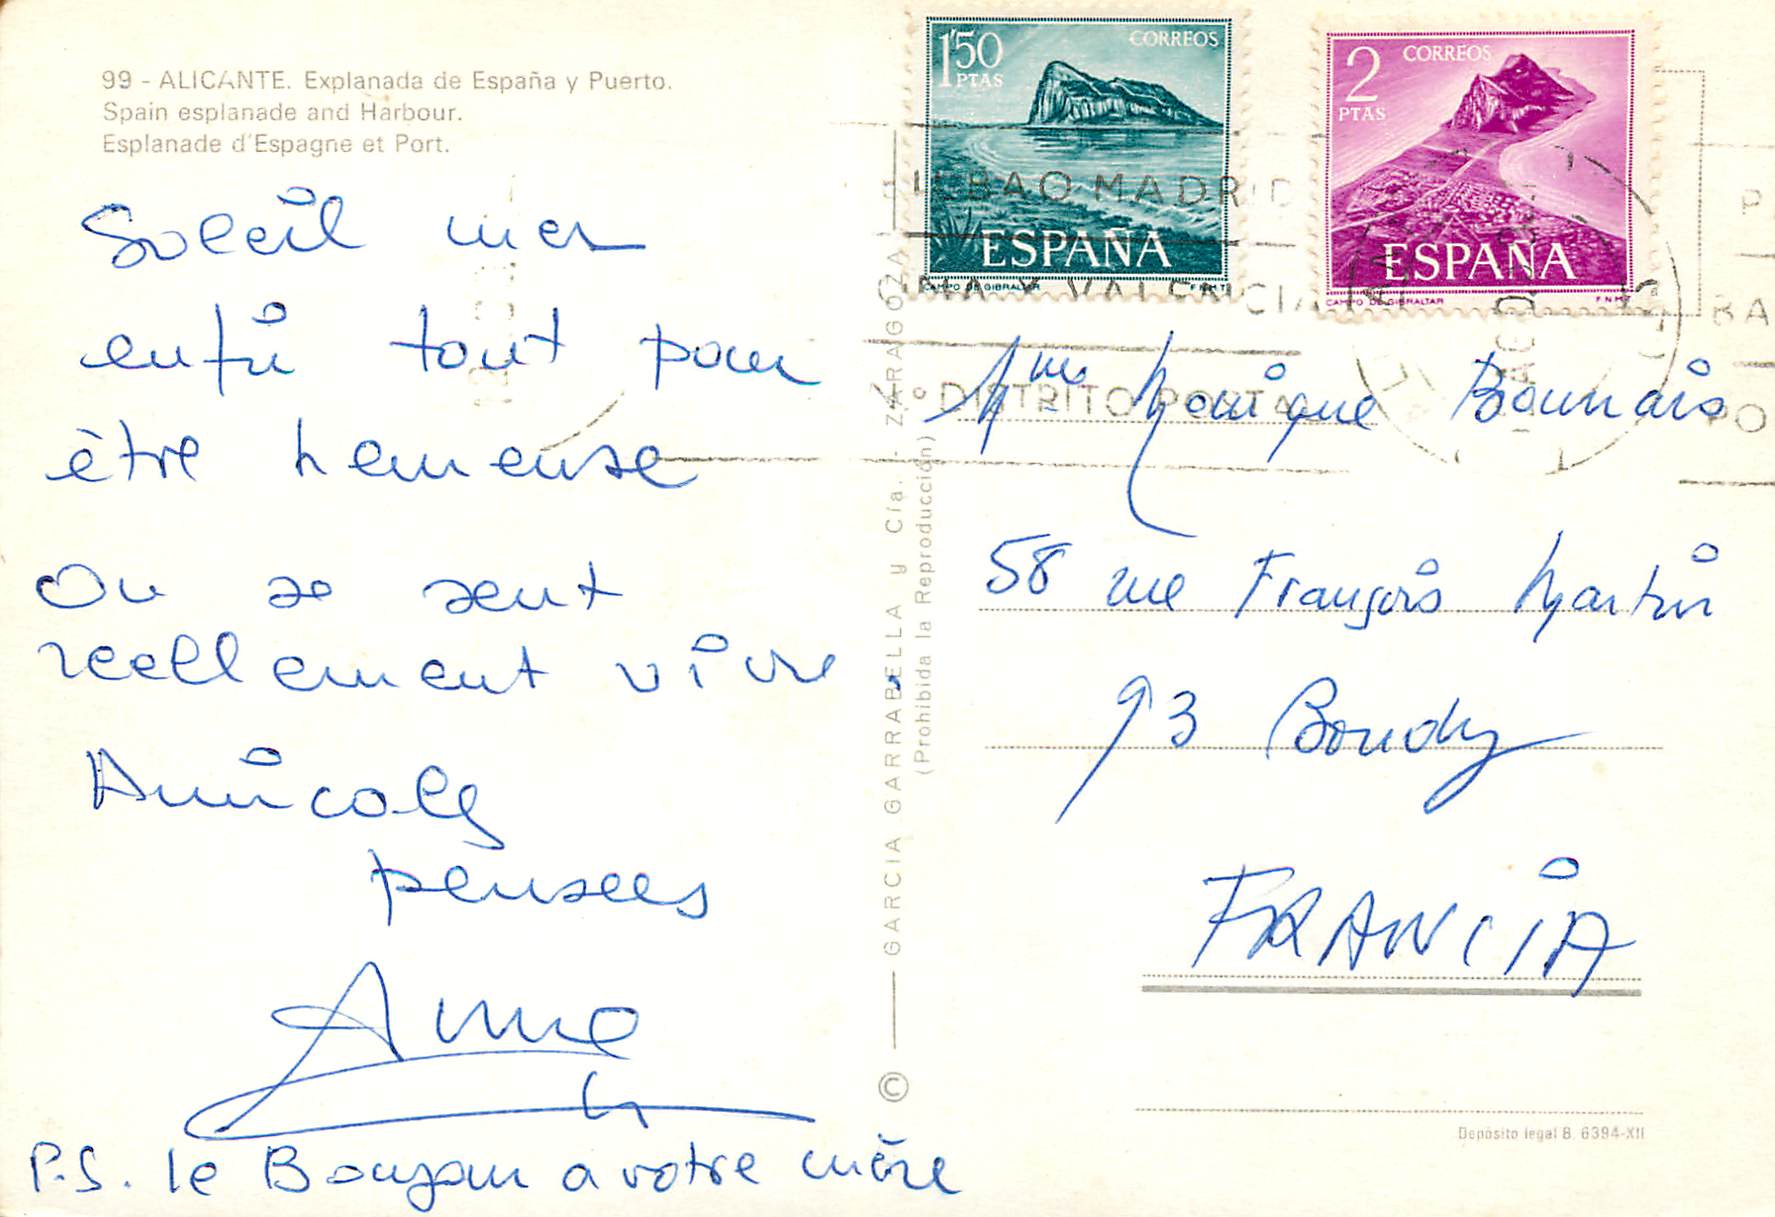 99 - ALICANTE. Explanada de España y Puerto.
Spain esplanade and Harbour.
Esplanade d'Espagne et Port.
Soleil mer
enfin tout pour
être heureuse
On se sent
reellement vivre
Amicales
pensees
Anne
P.S. le Bonjour a votre mère
GARCIA GARRABELLA y Cía. - ZARAGOZA
(Prohibida la Reproducción)
©
1'50 PTAS
CORREOS
ESPAÑA
CAMPO DE GIBRALTAR F.N.M.T.
2 PTAS
CORREOS
ESPAÑA
CAMPO DE GIBRALTAR F.N.M.T.
BILBAO.MADRID
NA Y VALENCIA
DISTRITO POSTAL
Mme Monique
58 rue François Martin
93 Bondy
FRANCIA
Depósito legal B. 6394-XII